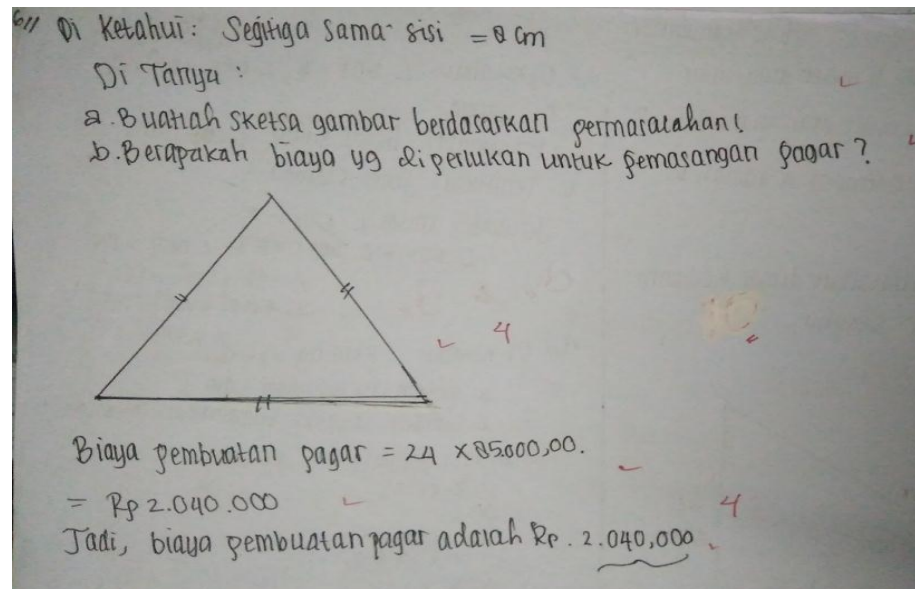 6// Di Ketahui: Segitiga sama-sisi = 8 cm
Di Tanya:
a. Buatlah sketsa gambar berdasarkan permasalahan!
b. Berapakah biaya yg diperlukan untuk pemasangan pagar?
4
Biaya pembuatan pagar = 24 × 85.000,00.
= Rp 2.040.000
4
Jadi, biaya pembuatan pagar adalah Rp. 2.040,000